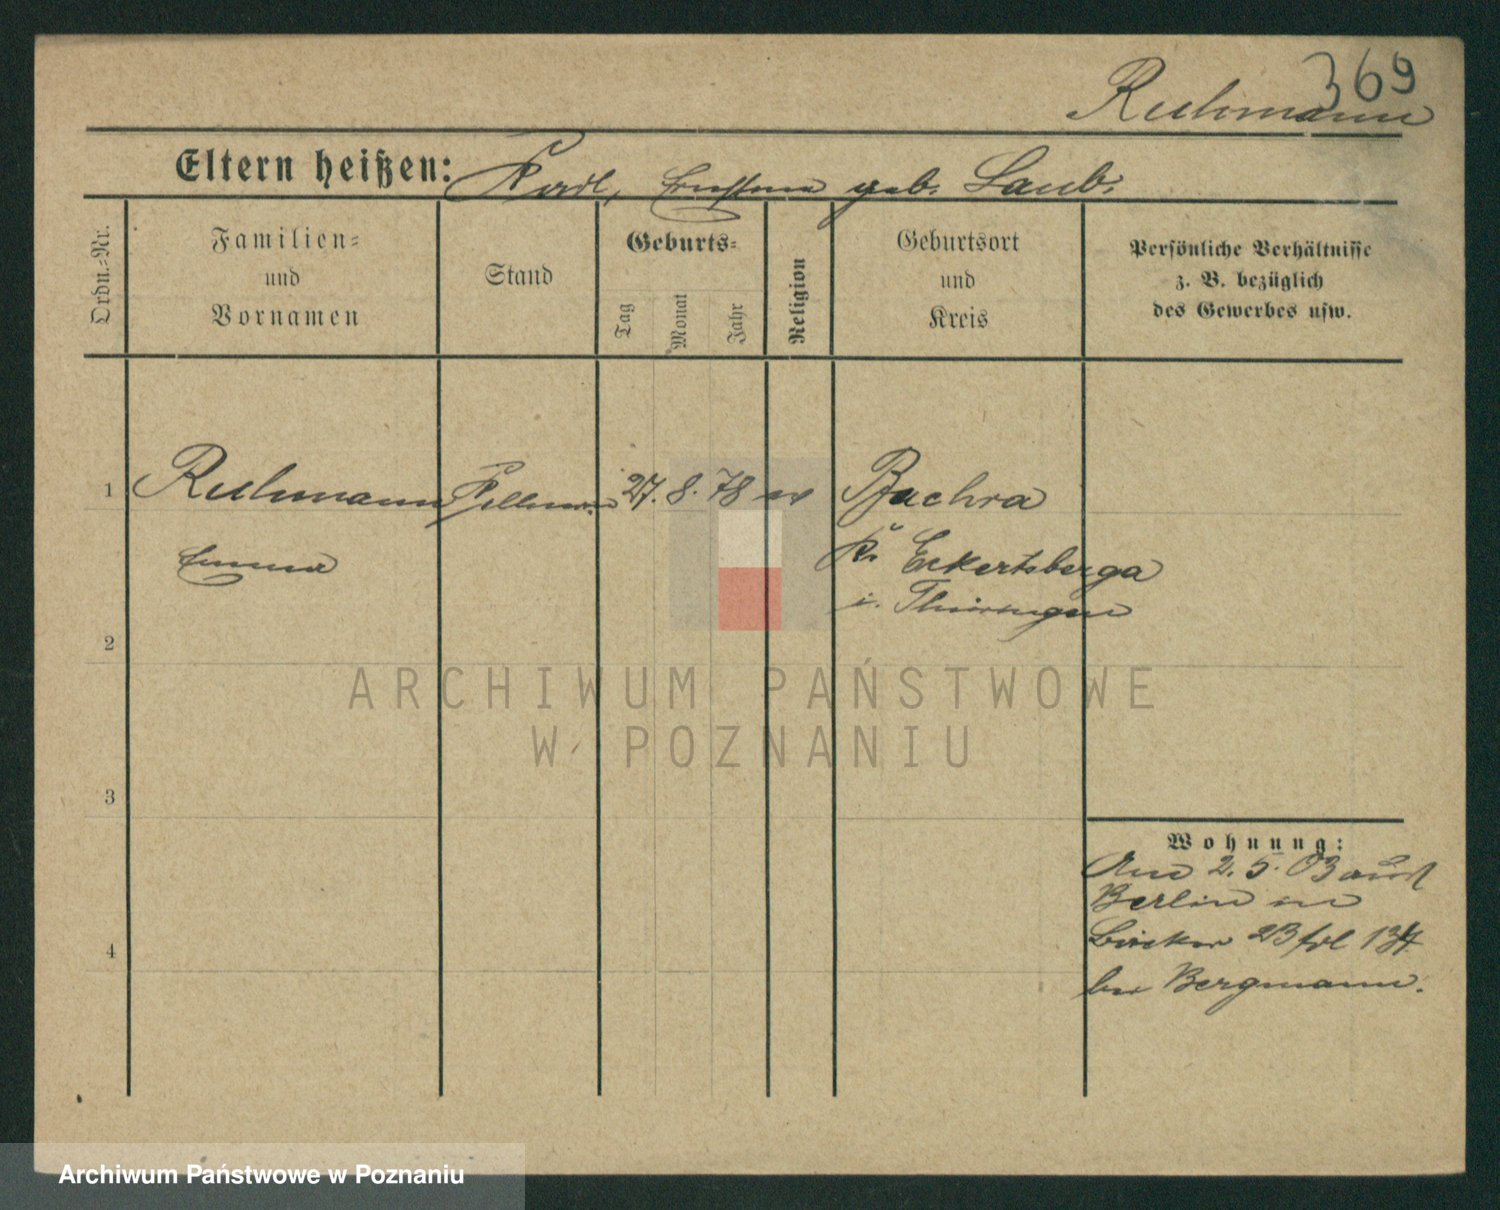 369
Ruhmann
Eltern heißen: Karl, geb. Laub.
Ordn.-Nr.
Familien- und Vornamen
Stand
Geburts-
Tag
Monat
Jahr
Religion
Geburtsort und Kreis
Persönliche Verhältnisse
z. B. bezüglich
des Gewerbes usw.
1 Ruhmann 27. 8. 78 ev Bachra
Emma
Kr. Eckertsberga
i. Thüringen
2
3
4
Wohnung:
Am 2. 5. 03 aus
Berlin in
23
bei Bergmann.
ARCHIWUM PAŃSTWOWE
W POZNANIU
Archiwum Państwowe w Poznaniu